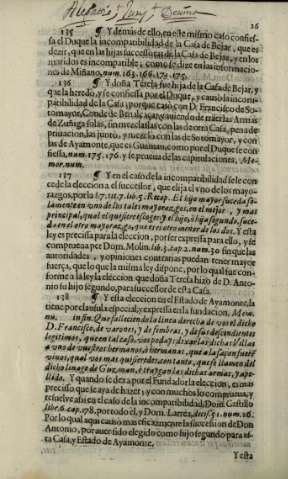 26
135 ¶ Y demas de ello, en este mismo caso confiessa
el Duque la incompatibilidad de la Casa de Bejar, que es
dezir, que en las hijas sucessoras de la Casa de Bejar, y en los
maridos es incompatible, como se dize en las informaciones
de Miñano, num. 163. 166. 173. 175.
136 ¶ Y doña Teresa fue hija de la Casa de Bejar, y
que la heredò, y se confiessa por el Duque, y causò la incompatibilidad
de la Casa; porque casò con D. Francisco de Sotomayor,
Conde de Benalcaçar, auiendo de traer las Armas
de Zuñiga solas, sin mezclarlas con las de otra Casa, pena de
priuacion, las juntò, y mezclò con las de Sotomayor, y con
las de Ayamonte, que es Guzman, como por el Duque se confiessa,
num. 175. 176. y se prueua de las capitulaciones, Memor.
num.
137 ¶ Y en el caso de la incompatibilidad se le concede
la eleccion al sucessor, que elija el vno de los mayorazgos,
por la l. 7. tit. 7. lib. 5. Recop. El hijo mayor suceda solamente
en vno de los tales mayorazgos, en el mejor, y mas
principal, qual el quisiere escoger: y el hijo, ò hija segundo, suceda
en el otro mayorazgo, que tres otro menor de los dos. Y esta
ley es precisa para la eleccion, por ser expressa para ello, y se
comprueua per Dom. Molin. lib. 3. cap. 2. num. 30. sin que las
autoridades, y opiniones contrarias puedan tener mayor
fuerça, que lo que la misma ley dispone, por lo qual fue conforme
à la ley la eleccion que doña Teresa hizo de D. Antonio
su hijo segundo, para sucessor de esta Casa.
138 ¶ Y esta eleccion en el Estado de Ayamonte, la
tiene por clausula especial, y expressa en la fundacion, Mem.
Que falleciendo la linea directa de vos el dicho
D. Francisco, de varones, y de hembras, y de sus descendientes
legitimos, que en tal caso, vos podays dexar las dichas Villas
à vno de vuestros hermanos, ò hermanas, que à la sazon fueren
viuos, qual vos mas quisieredes, con tanto, que se llamen del
dicho linage de Guzman, è traygan las dichas armas, y apellido.
Y quando se dexa por el fundador la eleccion, es mas
preciso que se aya de hazer; y con mucho lo comprueua, y
resuelue assi en el caso de la incompatibilidad, Dom. Castillo
libr. 6. cap. 178. por todo èl, y Dom. Larrea, decis. 51. num. 16.
Por lo qual aqui casò mas eficazmente la sucession de Don
Antonio, por auer sido elegido como hijo segundo para esta
Casa, y Estado de Ayamonte.
Y esta